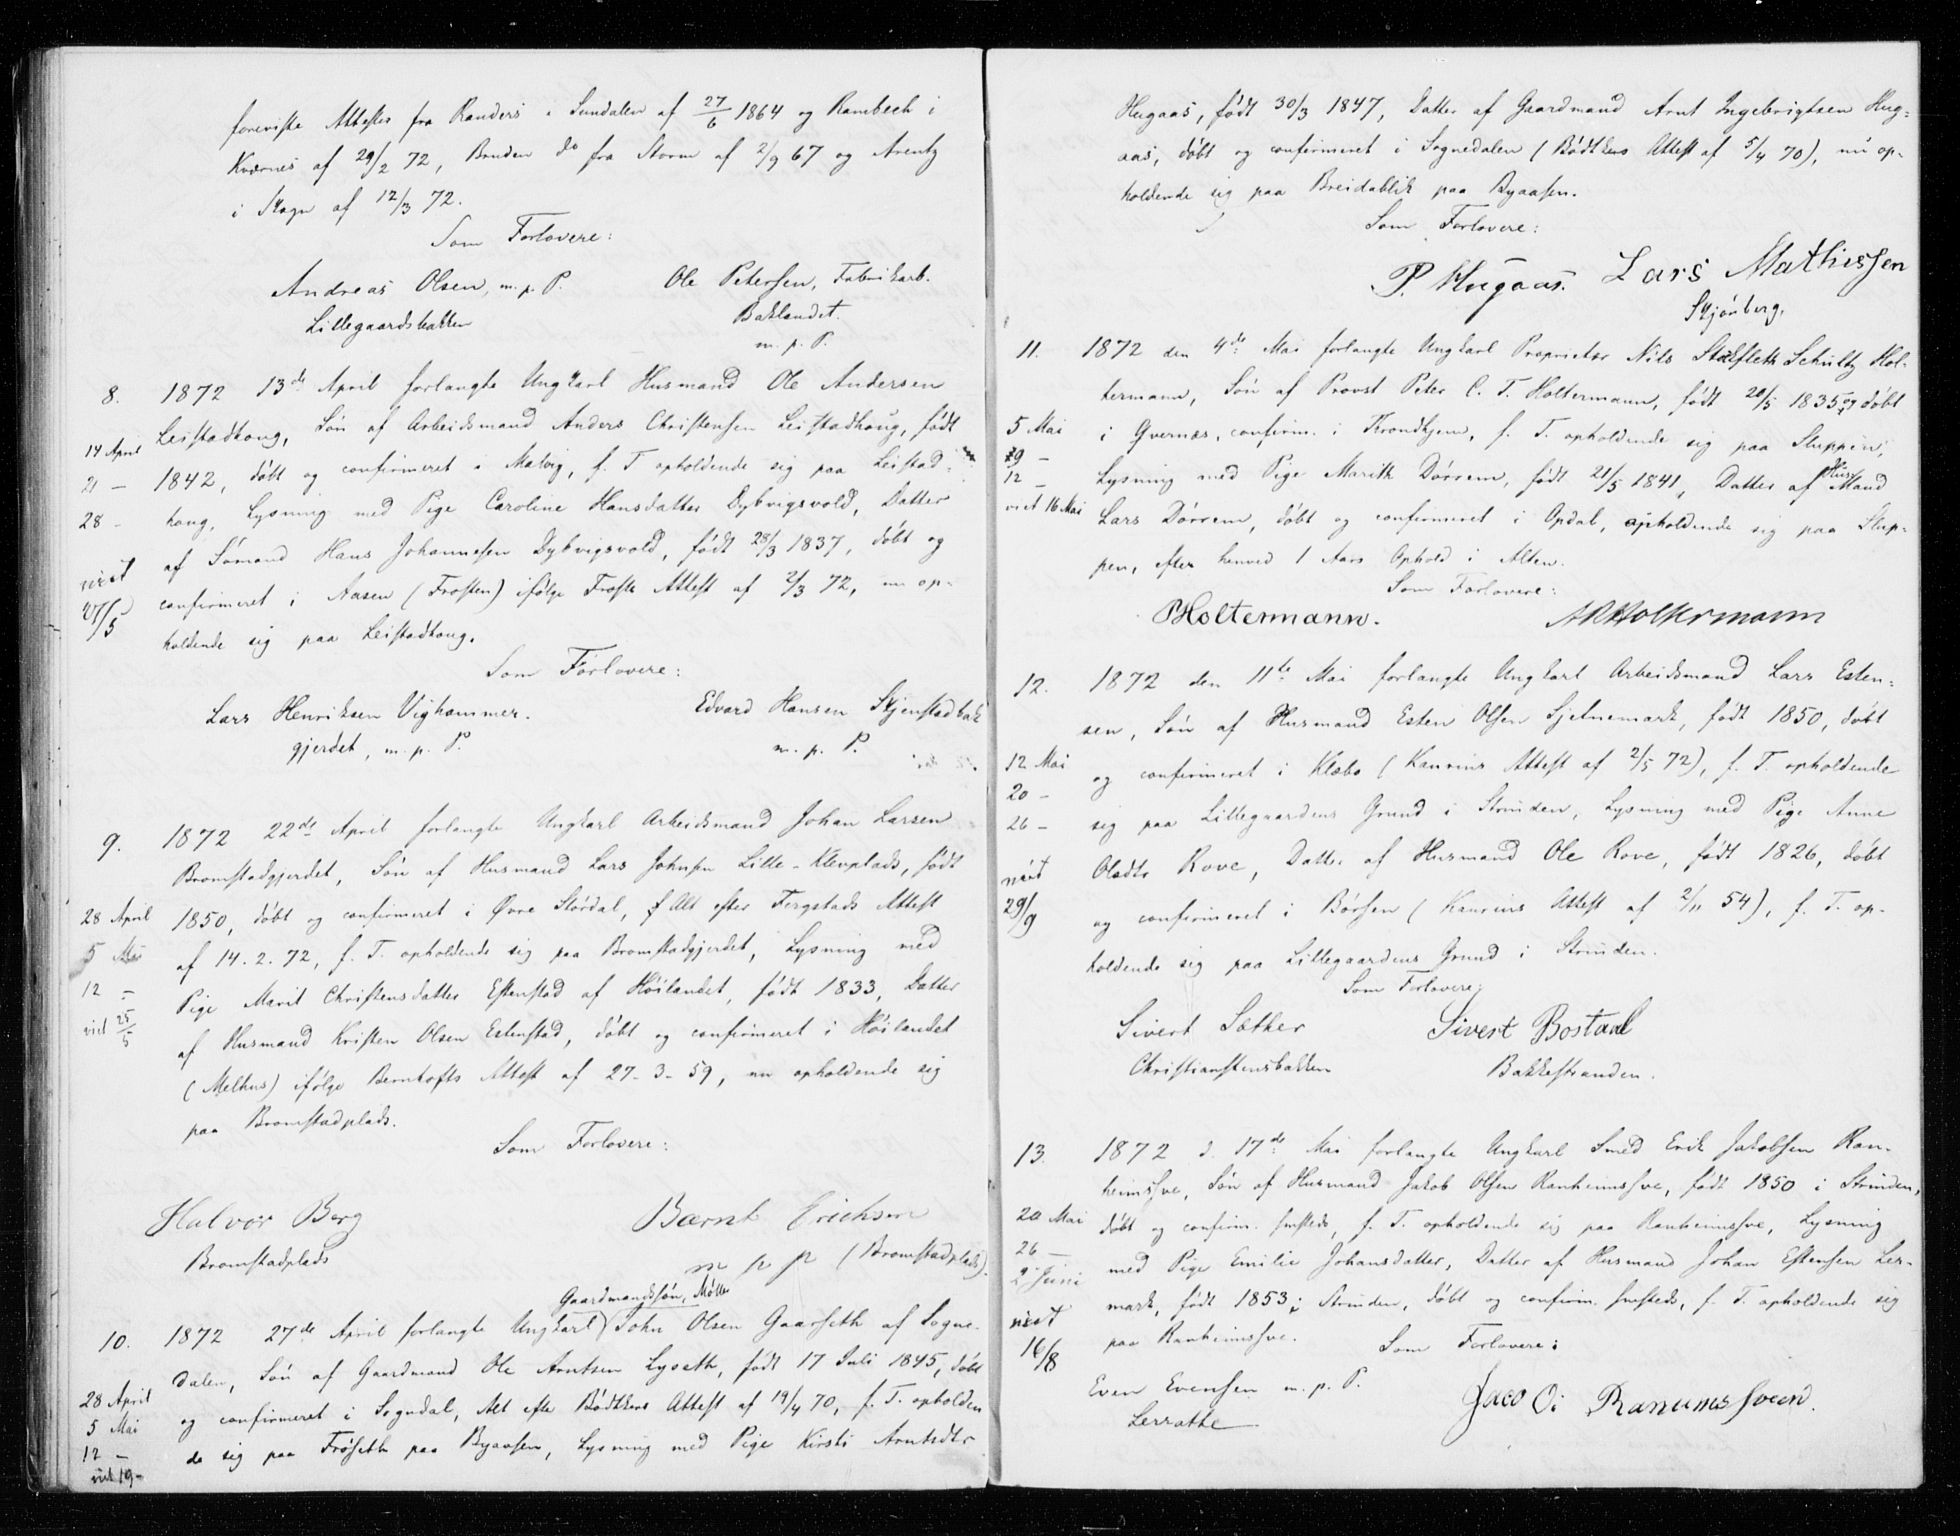 foreviste Attester fra Randers i Sundalen af 27/6 1864 og Rambech i
Kvernes af 29/2 72, Bruden do fra Storm af 2/9 67 og Arentz
i Skogn af 12/3 72.
Som Forlovere:
Andreas Olsen, m. p. P. Ole Petersen, Fabrikarb.
Lillegaardsbakken Baklandet.
m. p. P.
8. 1872 13de April forlangte Ungkarl Husmand Ole Andersen
Leistadhoug, Søn af Arbeidsmand Anders Christensen Leistadhoug, født
14 April
1842, døbt og confirmeret i Malvig, f. T. opholdende sig paa Leistad-
21 —
houg, Lysning med Pige Caroline Hansdatter Dybvigsvold, Datter
28 -
af Sømand Hans Johannesen Dybvigsvold, født 28/3 1837, døbt og
viet
confirmeret i Aasen (Frosten) ifølge Frosts Attest af 2/3 72, nu op-
holdende sig paa Leistadhoug.
Som Forlovere:
Lars Henriksen Vighammer. Edvard Hansen Skjenstadbak
gjerdet, m. p. P. m. p. P.
9. 1872 22de April forlangte Ungkarl Arbeidsmand Johan Larsen
Bromstadgjerdet, Søn af Husmand Lars Johnsen Lille-Klevplads, født
28 April
1850, døbt og confirmeret i Øvre Stordal, Alt efter Fergstads Attest
5 Mai
af 14. 2. 72, f. T. opholdende sig paa Bromstadgjerdet, Lysning med
12 —
Pige Marit Christensdatter Estenstad af Høilandet, født 1833, Datter
viet 25/5
af Husmand Kristen Olsen Estenstad, døbt og confirmeret i Høilandet
(Melhus) ifølge Bernhofts Attest af 27-3-59, nu opholdende sig
paa Bromstadplads.
Som Forlovere:
Halvor Berg Bærnt Erichsen
Bromstadplads m p p (Bromstadplads).
Gaardmandssøn, Møller
10. 1872 27de April forlangte Ungkarl John Olsen Gaarseth af Sogne-
dalen, Søn af Gaardmand Ole Arntsen Lyseth, født 17 Juli 1845, døbt
28 April
og confirmeret i Sogndal, Alt efter Bødtkers Attest af 19/4 70, f. T. opholden
5 Mai
de sig paa Frøseth paa Byaasen, Lysning med Pige Kirsti Arntsdtr
12 —
viet 19-
Hugaas, født 30/3 1847, Datter af Gaardmand Arnt Ingebrigtsen Hug-
aas, døbt og confirmeret i Sognedalen (Bødtkers Attest af 5/4 70), nu op-
holdende sig paa Breidablik paa Byaasen.
Som Forlovere:
P. Hugaas. Lars Mathissen
Skjønberg.
11. 1872 den 4de Mai forlangte Ungkarl Proprietær Nils Stalfleth Schultz Hol-
termann, Søn af Provst Peter C. T. Holtermann, født 20/5 1835 og døbt
5 Mai
i Qvernæs, confirm. i Throndhjem, f. T. opholdende sig paa Sluppen,
9 —
Lysning med Pige Marith Dørrem, født 21/5 1841, Datter af Husmand
12 —
viet 16 Mai
Lars Dørrem, døbt og confirmeret i Opdal, opholdende sig paa Slup-
pen, efter henved 1 Aars Ophold i Alten.
Som Forlovere:
Holtermann. Holtermann
12. 1872 den 11te Mai forlangte Ungkarl Arbeidsmand Lars Esten-
sen, Søn af Husmand Esten Olsen Sjetnemark, født 1850, døbt
12 Mai
og confirmeret i Klæbo (Kaurins Attest af 2/5 72), f. T. opholdende
20 —
sig paa Lillegaardens Grund i Strinden, Lysning med Pige Anne
26 —
Olsdtr Rove, Datter af Husmand Ole Rove, født 1826, døbt
viet
29/9
og confirmeret i Børsen (Kaurins Attest af 2/11 54), f. T. op-
holdende sig paa Lillegaardens Grund i Strinden.
Som Forlovere:
Sivert Sæther Sivert Bostad
Christianstensbakken Bakkestranden.
13. 1872 d. 17de Mai forlangte Ungkarl Smed Erik Jakobsen Ran-
heimsve, Søn af Husmand Jakob Olsen Ranheimsve, født 1850 i Strinden,
20 Mai
døbt og confirm. smsteds, f. T. opholdende sig paa Ranheimsve, Lysning
26 —
med Pige Emilie Johansdatter, Datter af Husmand Johan Estensen Ler-
2 Juni
mark, født 1853 i Strinden, døbt og confirm. smsteds, f. T. opholdende sig
viet
paa Ranheimsve.
16/8
Som Forlovere:
Even Evensen m. p. P. Jaco Oi Ranumssveen.